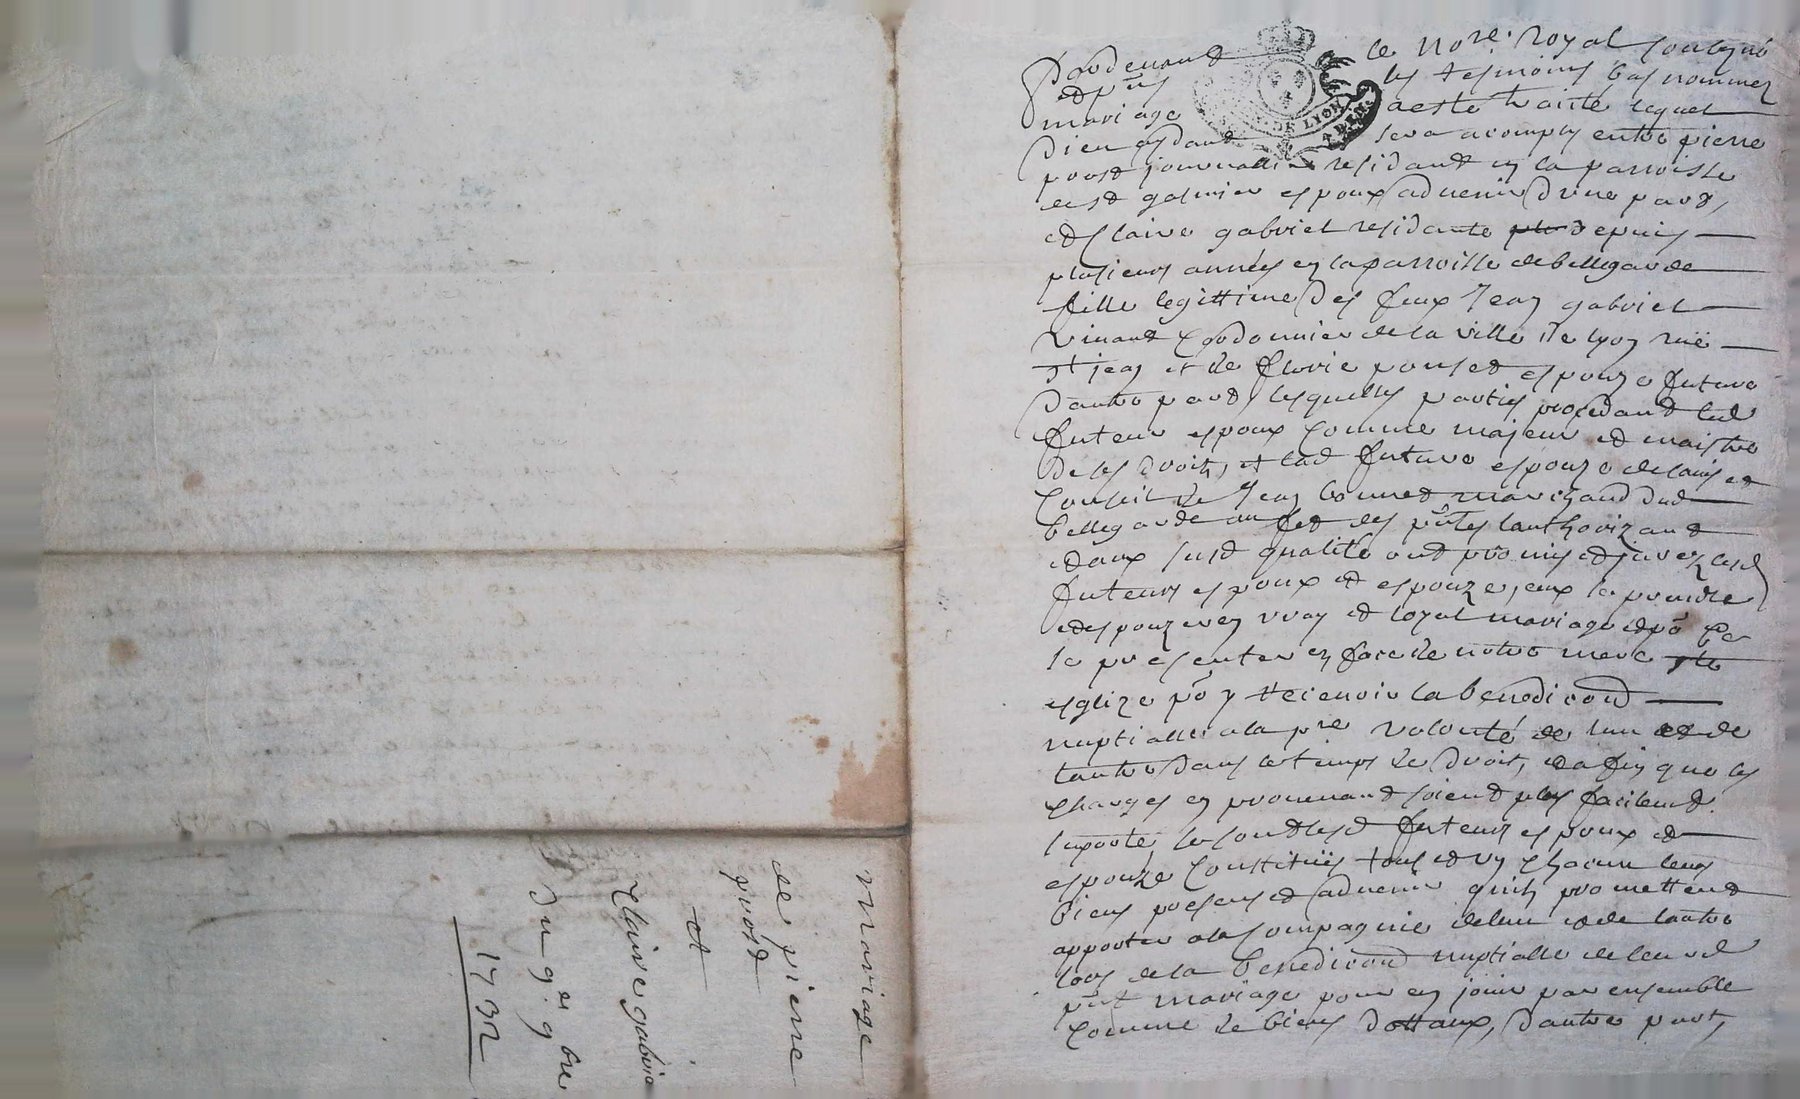 Pardevant le nore. royal soubzné
et pnts les tesmoins bas nommez
mariage a esté traité lequel
Dieu aydant sera acomply entre pierre
prost journallier residant en la parroisse
de st galmier espoux advenir d'une part,
et claire gabriel residante depuis
plusieurs années en la parroisse de bellegarde
fille legittime des feux Jean gabriel
vivant cordonnier de la ville de lyon rüe
st jean et de florie ponset espouze future
d'autre part, lesquelles parties procedant led
futeur espoux comme majeur et maistre
de ses droits, et lad future espouze de l'avis et
conseil de Jean bonnet marchand dud
bellegarde au fet des pntes l'authorizant
et aux susd qualité ont promis et juré lesd
futeurs espoux et espouze, eux se prendre
et espouzer en vray et loyal mariage et pr ce
se presenter en face de notre mere ste
esglize pr y recevoir la benediction
nuptialle a la pre volonté de l'un et de
l'autre dans le temps de droit, et afin que les
charges en provenant soient plus facilemt.
suporté se sont lesd futeurs espoux et
espouze constitués tous et un chacun leurs
biens presens et advenir qu'ils promettent
apporter a la compagnie de l'un et de l'autre
lors de la benediction nuptialle de leurd
pnt mariage pour en jouir par ensemble
comme de biens dottaux, d'autre part,
Mariage
de pierre
prost
et
Claire gabriel
Du 9e 9bre
1732
DE LYON